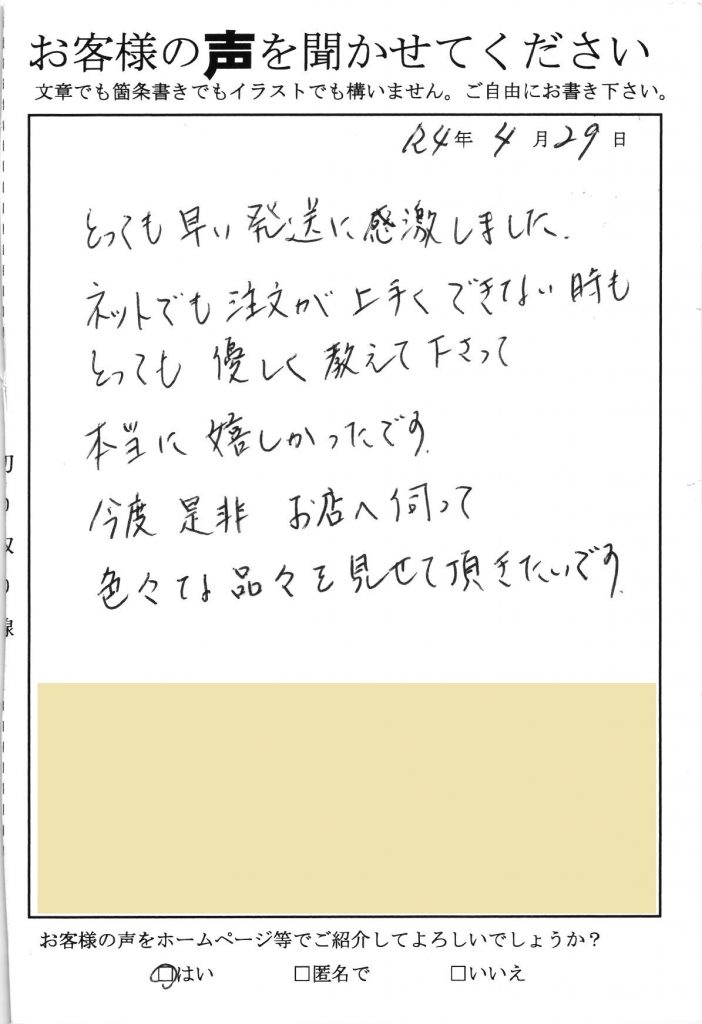 お客様の声を聞かせてください
文章でも箇条書きでもイラストでも構いません。ご自由にお書き下さい。
R4年 4月29日
とっても早い発送に感激しました.
ネットでも注文が上手くできない時も
とっても優しく教えて下さって
本当に嬉しかったです.
今度是非お店へ伺って
色々な品々を見せて頂きたいです.
切り取り線
お客様の声をホームページ等でご紹介してよろしいでしょうか?
□はい □匿名で □いいえ